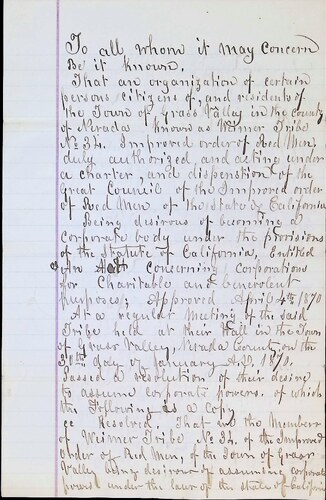 To all whom it may concern
Be it known,
That an organization of certain
persons citizens of, and residents of
the Town of Grass Valley in the county
of Nevada known as Weimer Tribe
No 34. Improved order of Red Men,
duly authorized, and acting under
a charter, and dispension of the
Great Council of the Improved order
of Red Men of the state of California
Being desirous of becoming a
corporate body under the provisions
of the Statute of California, Entitled
An Act concerning Corporations
for Charitable and benevolent
purposes; Approved April 4th 1870
At a regular Meeting of the said
Tribe held at their Hall in the Town
of Grass Valley, Nevada County, on the
day of January A.D. 1871.
Passed a resolution of their desire
to assume corporate powers. of which
the Following is a copy
Resolved, That we the Members
of Weimer Tribe No 34. of the Improved
Order of Red Men, of the Town of Grass
Valley being desirous of assuming corporate
powers under the laws of the state of California